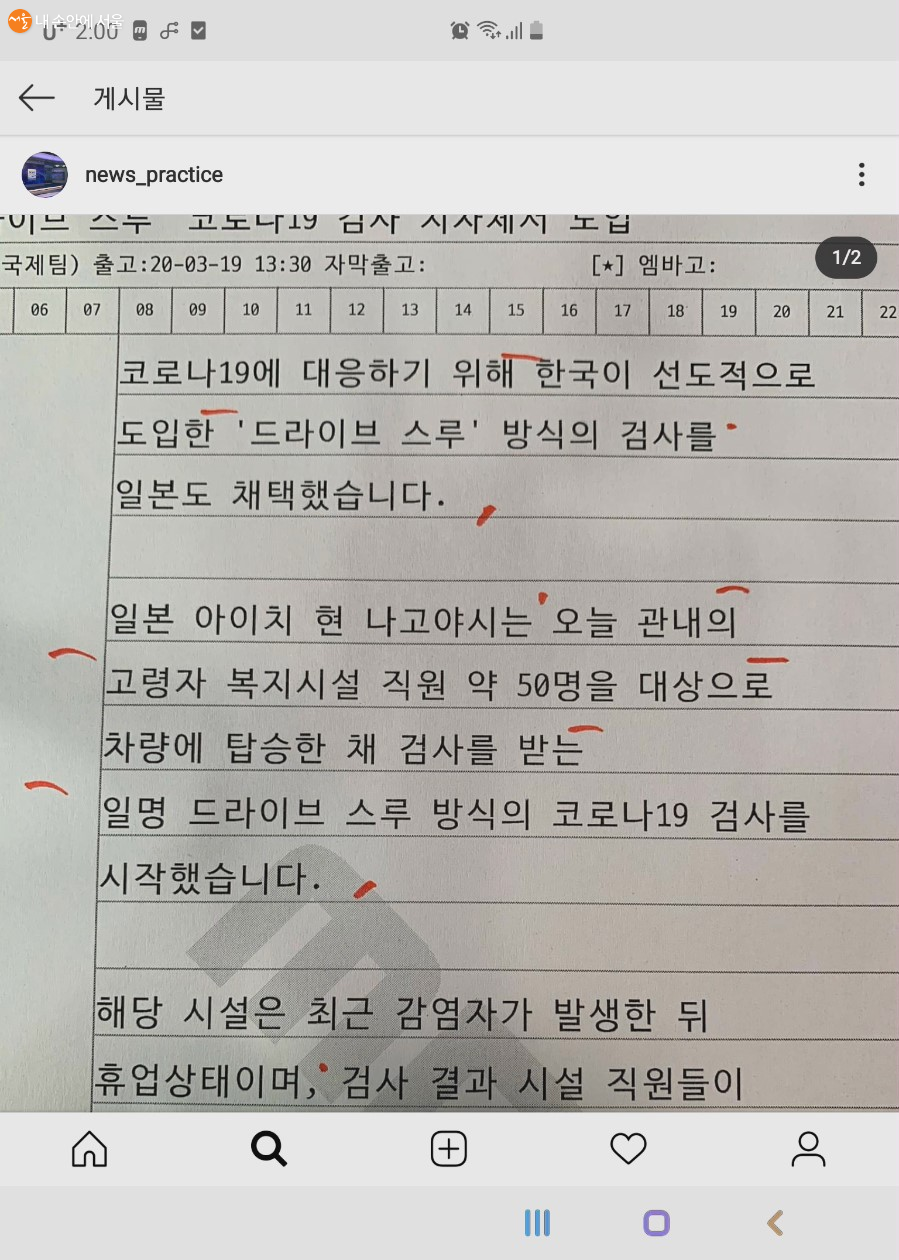 내 손안에 서울
U+ 2:00
게시물
news_practice
이브 스루' 코로나19 검사 지자체서 도입
국제팀) 출고:20-03-19 13:30 자막출고: [★] 엠바고:
1/2
06 07 08 09 10 11 12 13 14 15 16 17 18 19 20 21 22
코로나19에 대응하기 위해 한국이 선도적으로
도입한 '드라이브 스루' 방식의 검사를
일본도 채택했습니다.
일본 아이치 현 나고야시는 오늘 관내의
고령자 복지시설 직원 약 50명을 대상으로
차량에 탑승한 채 검사를 받는
일명 드라이브 스루 방식의 코로나19 검사를
시작했습니다.
해당 시설은 최근 감염자가 발생한 뒤
휴업상태이며, 검사 결과 시설 직원들이